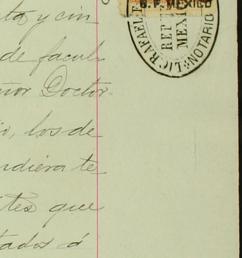 ta y cin
de facul
ñor Doctor
o, los de
ndiera te
tes que
tados á
G. F. MEXICO
LIC. RAFAEL F.
NOTARIO
REP.
MEXI